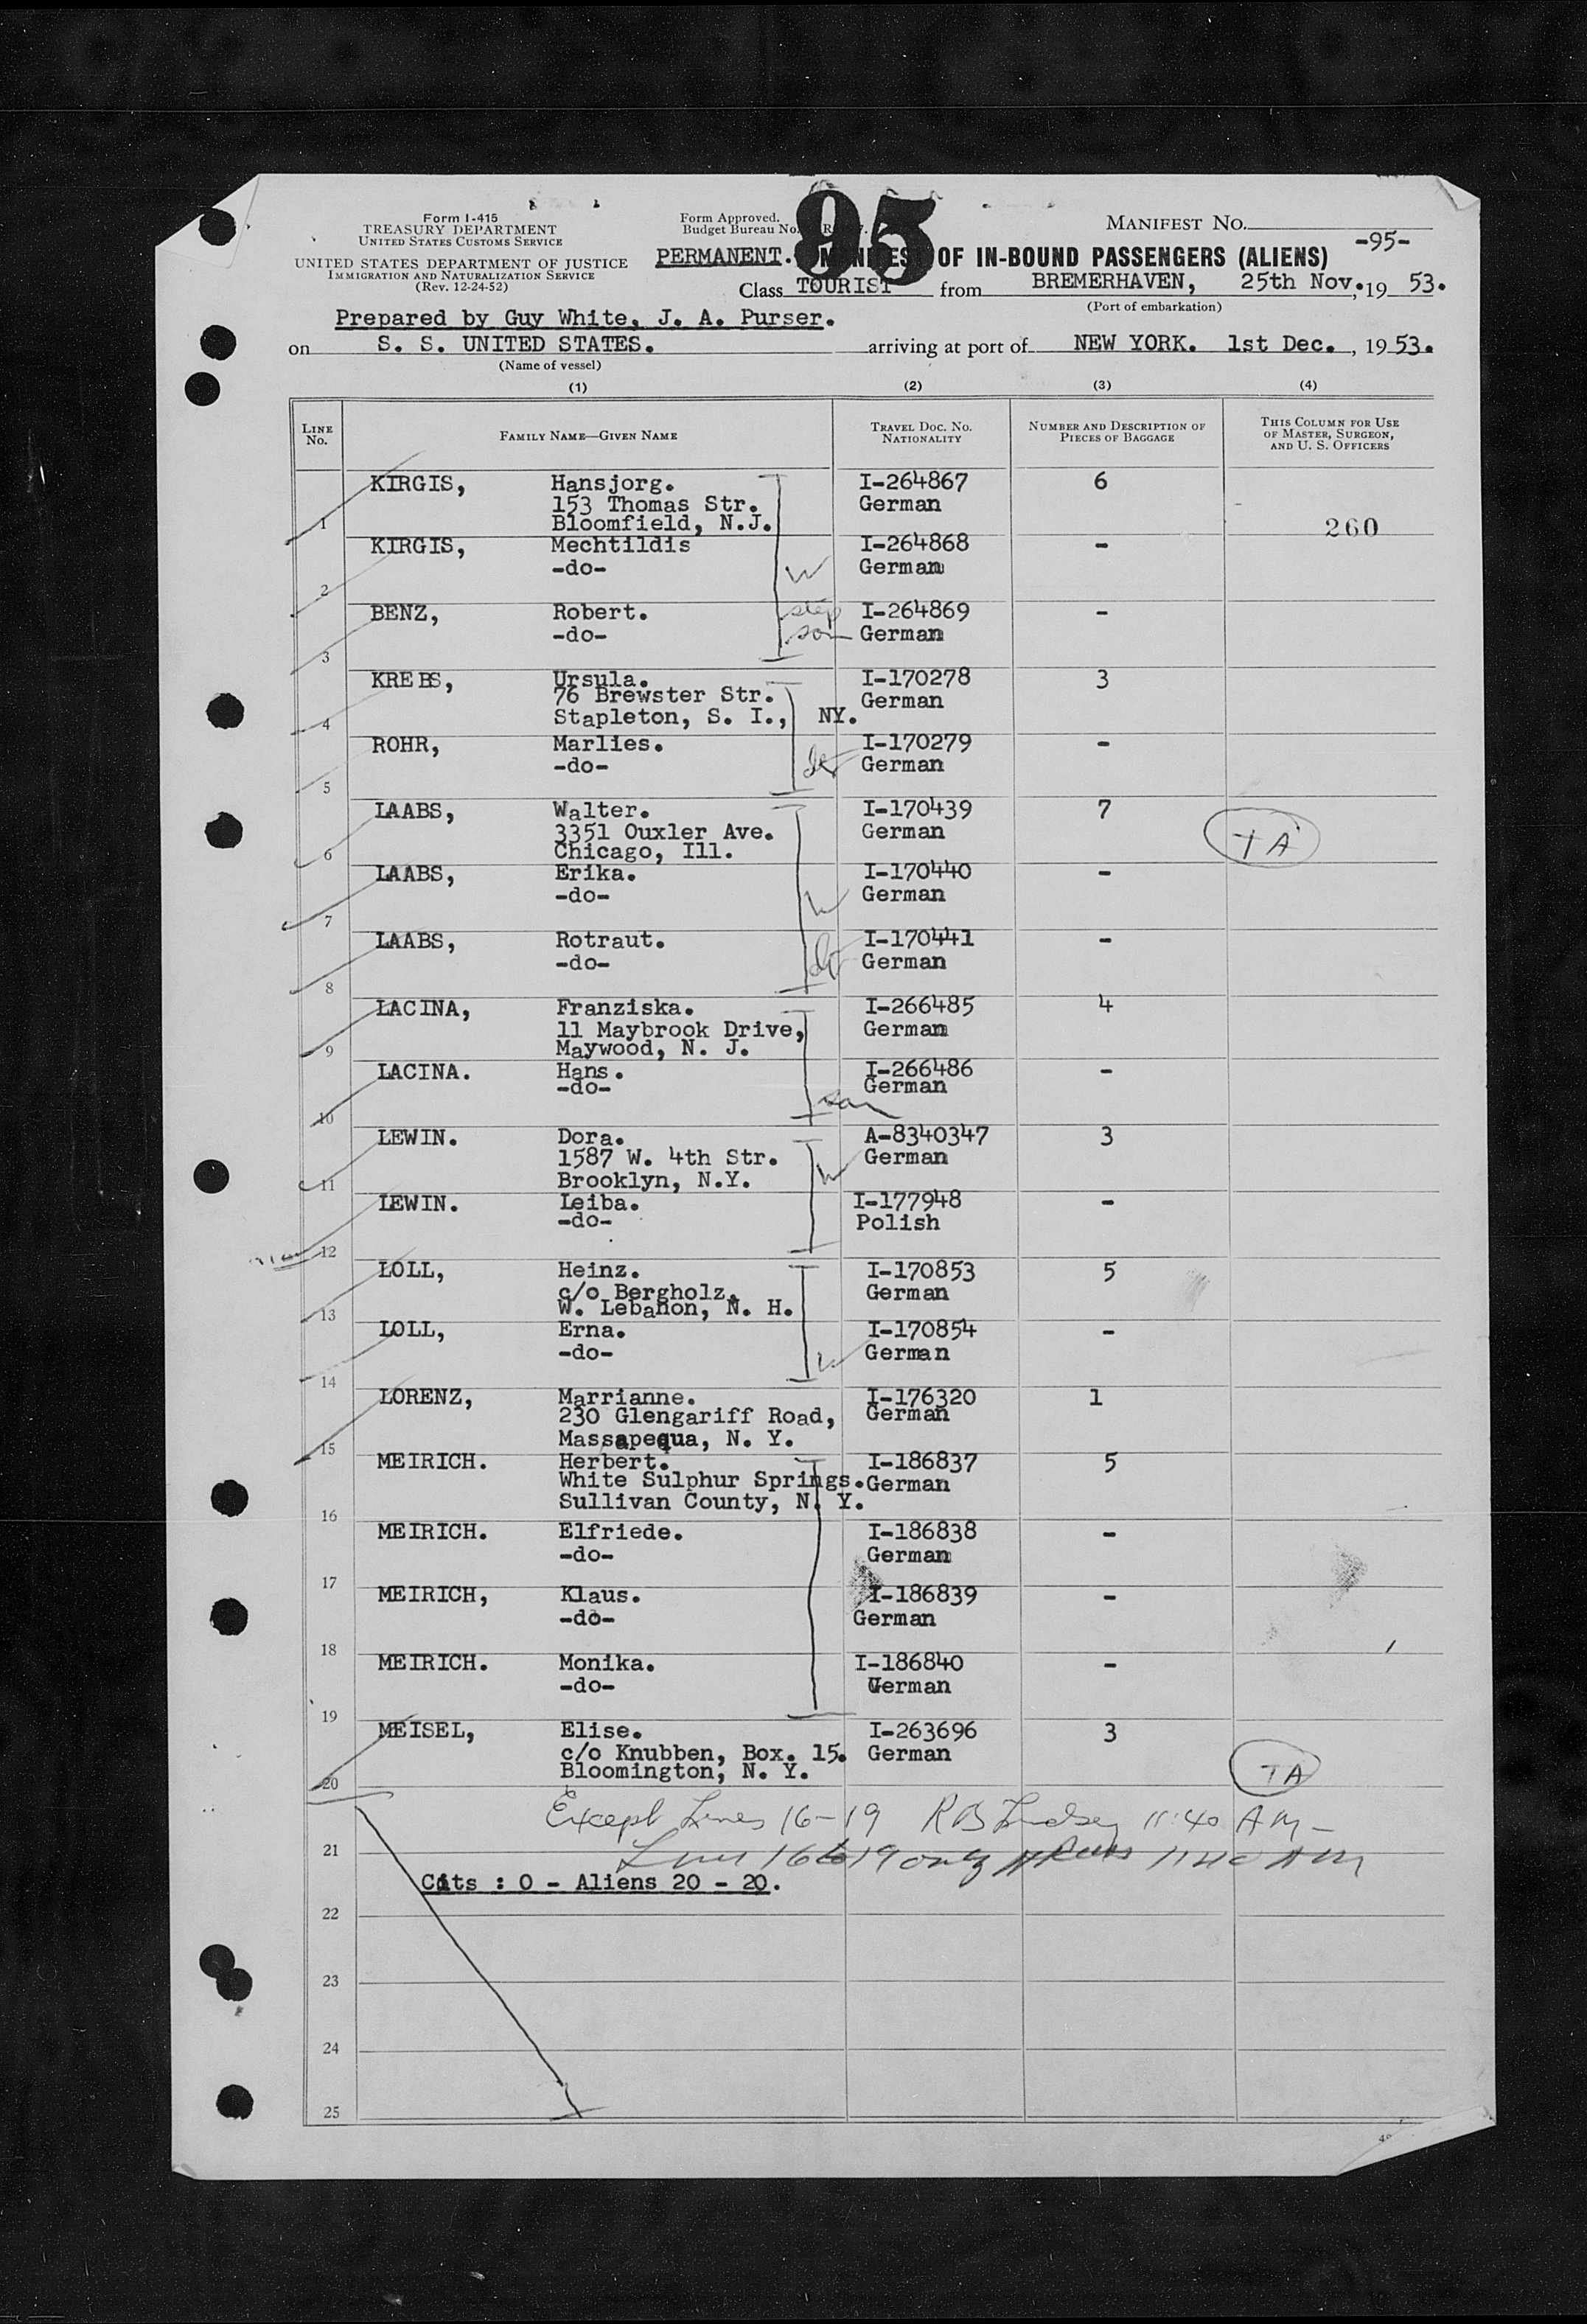 Form I-415
TREASURY DEPARTMENT
UNITED STATES CUSTOMS SERVICE
UNITED STATES DEPARTMENT OF JUSTICE
IMMIGRATION AND NATURALIZATION SERVICE
(Rev. 12-24-52)
Form Approved.
Budget Bureau No.
95
MANIFEST NO.
-95-
PERMANENT. MANIFEST OF IN-BOUND PASSENGERS (ALIENS)
Class TOURIST from BREMERHAVEN, 25th Nov., 19 53.
(Port of embarkation)
Prepared by Guy White, J. A. Purser.
on S. S. UNITED STATES. arriving at port of NEW YORK. 1st Dec. , 19 53.
(Name of vessel)
(1) (2) (3) (4)
LINE No. FAMILY NAME—GIVEN NAME TRAVEL DOC. NO. NATIONALITY NUMBER AND DESCRIPTION OF PIECES OF BAGGAGE THIS COLUMN FOR USE OF MASTER, SURGEON, AND U. S. OFFICERS
KIRGIS, Hansjorg. I-264867 6
153 Thomas Str. German
1 Bloomfield, N.J. 260
KIRGIS, Mechtildis I-264868 -
-do- W German
2
BENZ, Robert. step I-264869 -
-do- son German
3
KREBS, Ursula. I-170278 3
76 Brewster Str. German
4 Stapleton, S. I., NY.
ROHR, Marlies. I-170279 -
-do- German
5
LAABS, Walter. I-170439 7
3351 Ouxler Ave. German TA
6 Chicago, Ill.
LAABS, Erika. I-170440 -
-do- W German
7
LAABS, Rotraut. I-170441 -
-do- German
8
LACINA, Franziska. I-266485 4
11 Maybrook Drive, German
9 Maywood, N. J.
LACINA. Hans. I-266486 -
-do- German
10 son
LEWIN. Dora. A-8340347 3
1587 W. 4th Str. W German
11 Brooklyn, N.Y.
LEWIN. Leiba. I-177948 -
-do- Polish
12
LOLL, Heinz. I-170853 5
c/o Bergholz, German
13 W. Lebanon, N. H.
LOLL, Erna. I-170854 -
-do- W German
14
LORENZ, Marrianne. I-176320 1
230 Glengariff Road, German
15 Massapequa, N. Y.
MEIRICH. Herbert. I-186837 5
White Sulphur Springs. German
16 Sullivan County, N. Y.
MEIRICH. Elfriede. I-186838 -
-do- German
17
MEIRICH, Klaus. I-186839 -
-do- German
18
MEIRICH. Monika. I-186840 -
-do- German
19
MEISEL, Elise. I-263696 3
c/o Knubben, Box. 15. German
20 Bloomington, N. Y. TA
Except Lines 16-19 R B Lindsey 11:40 AM-
21 Lines 16 to 19 only 1140 AM
Cits : 0 - Aliens 20 - 20.
22
23
24
25